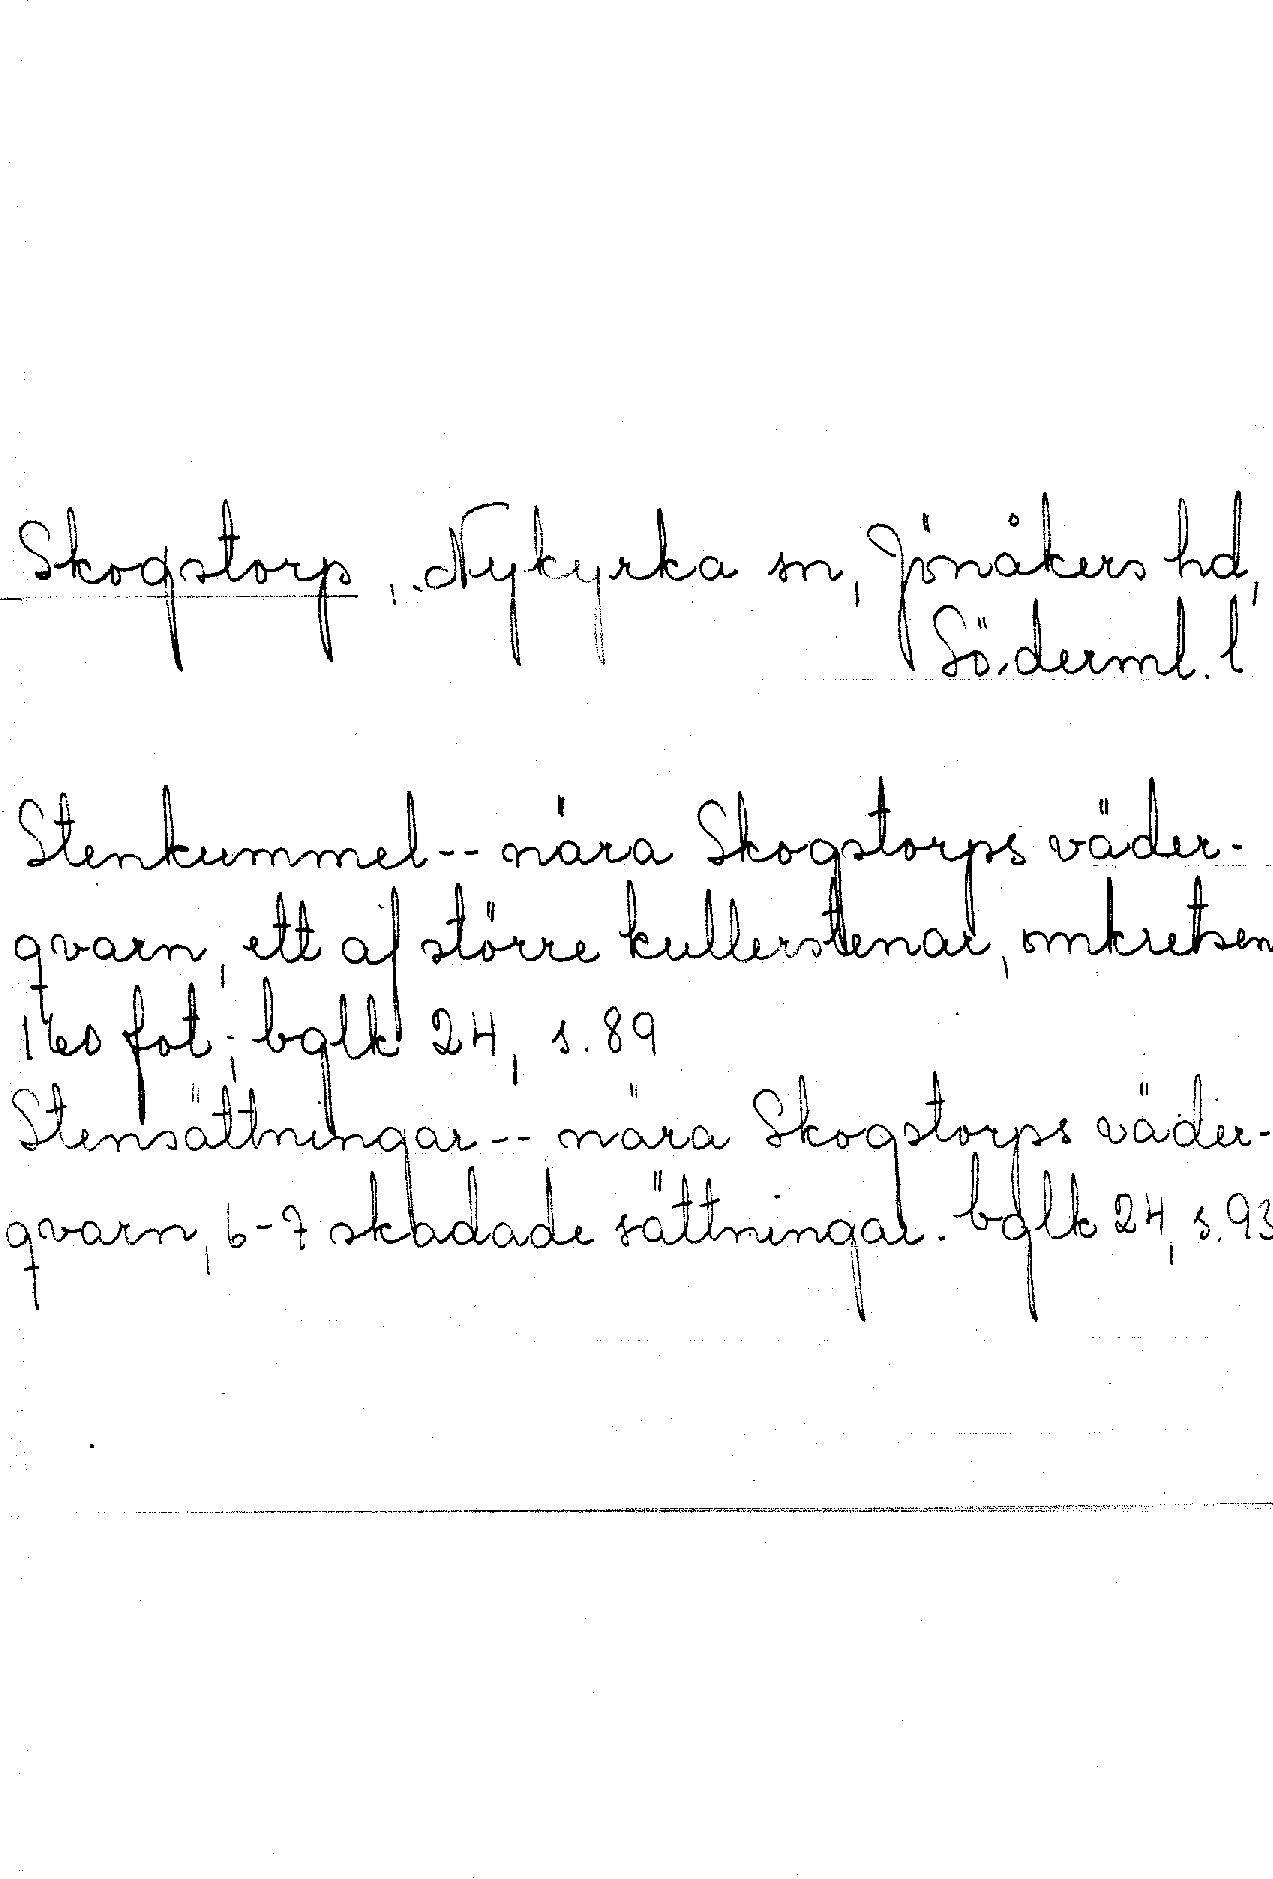 Skogstorp, Nykyrka sn, Jönåkers hd,
Söderml. l
Stenkummel -- nära Skogstorps väder-
qvarn, ett af större kullerstenar, omkretsen
160 fot; bglk 24, s. 89
Stensättningar -- nära Skogstorps väder-
qvarn, 6-7 skadade sättningar. bglk 24, s. 93